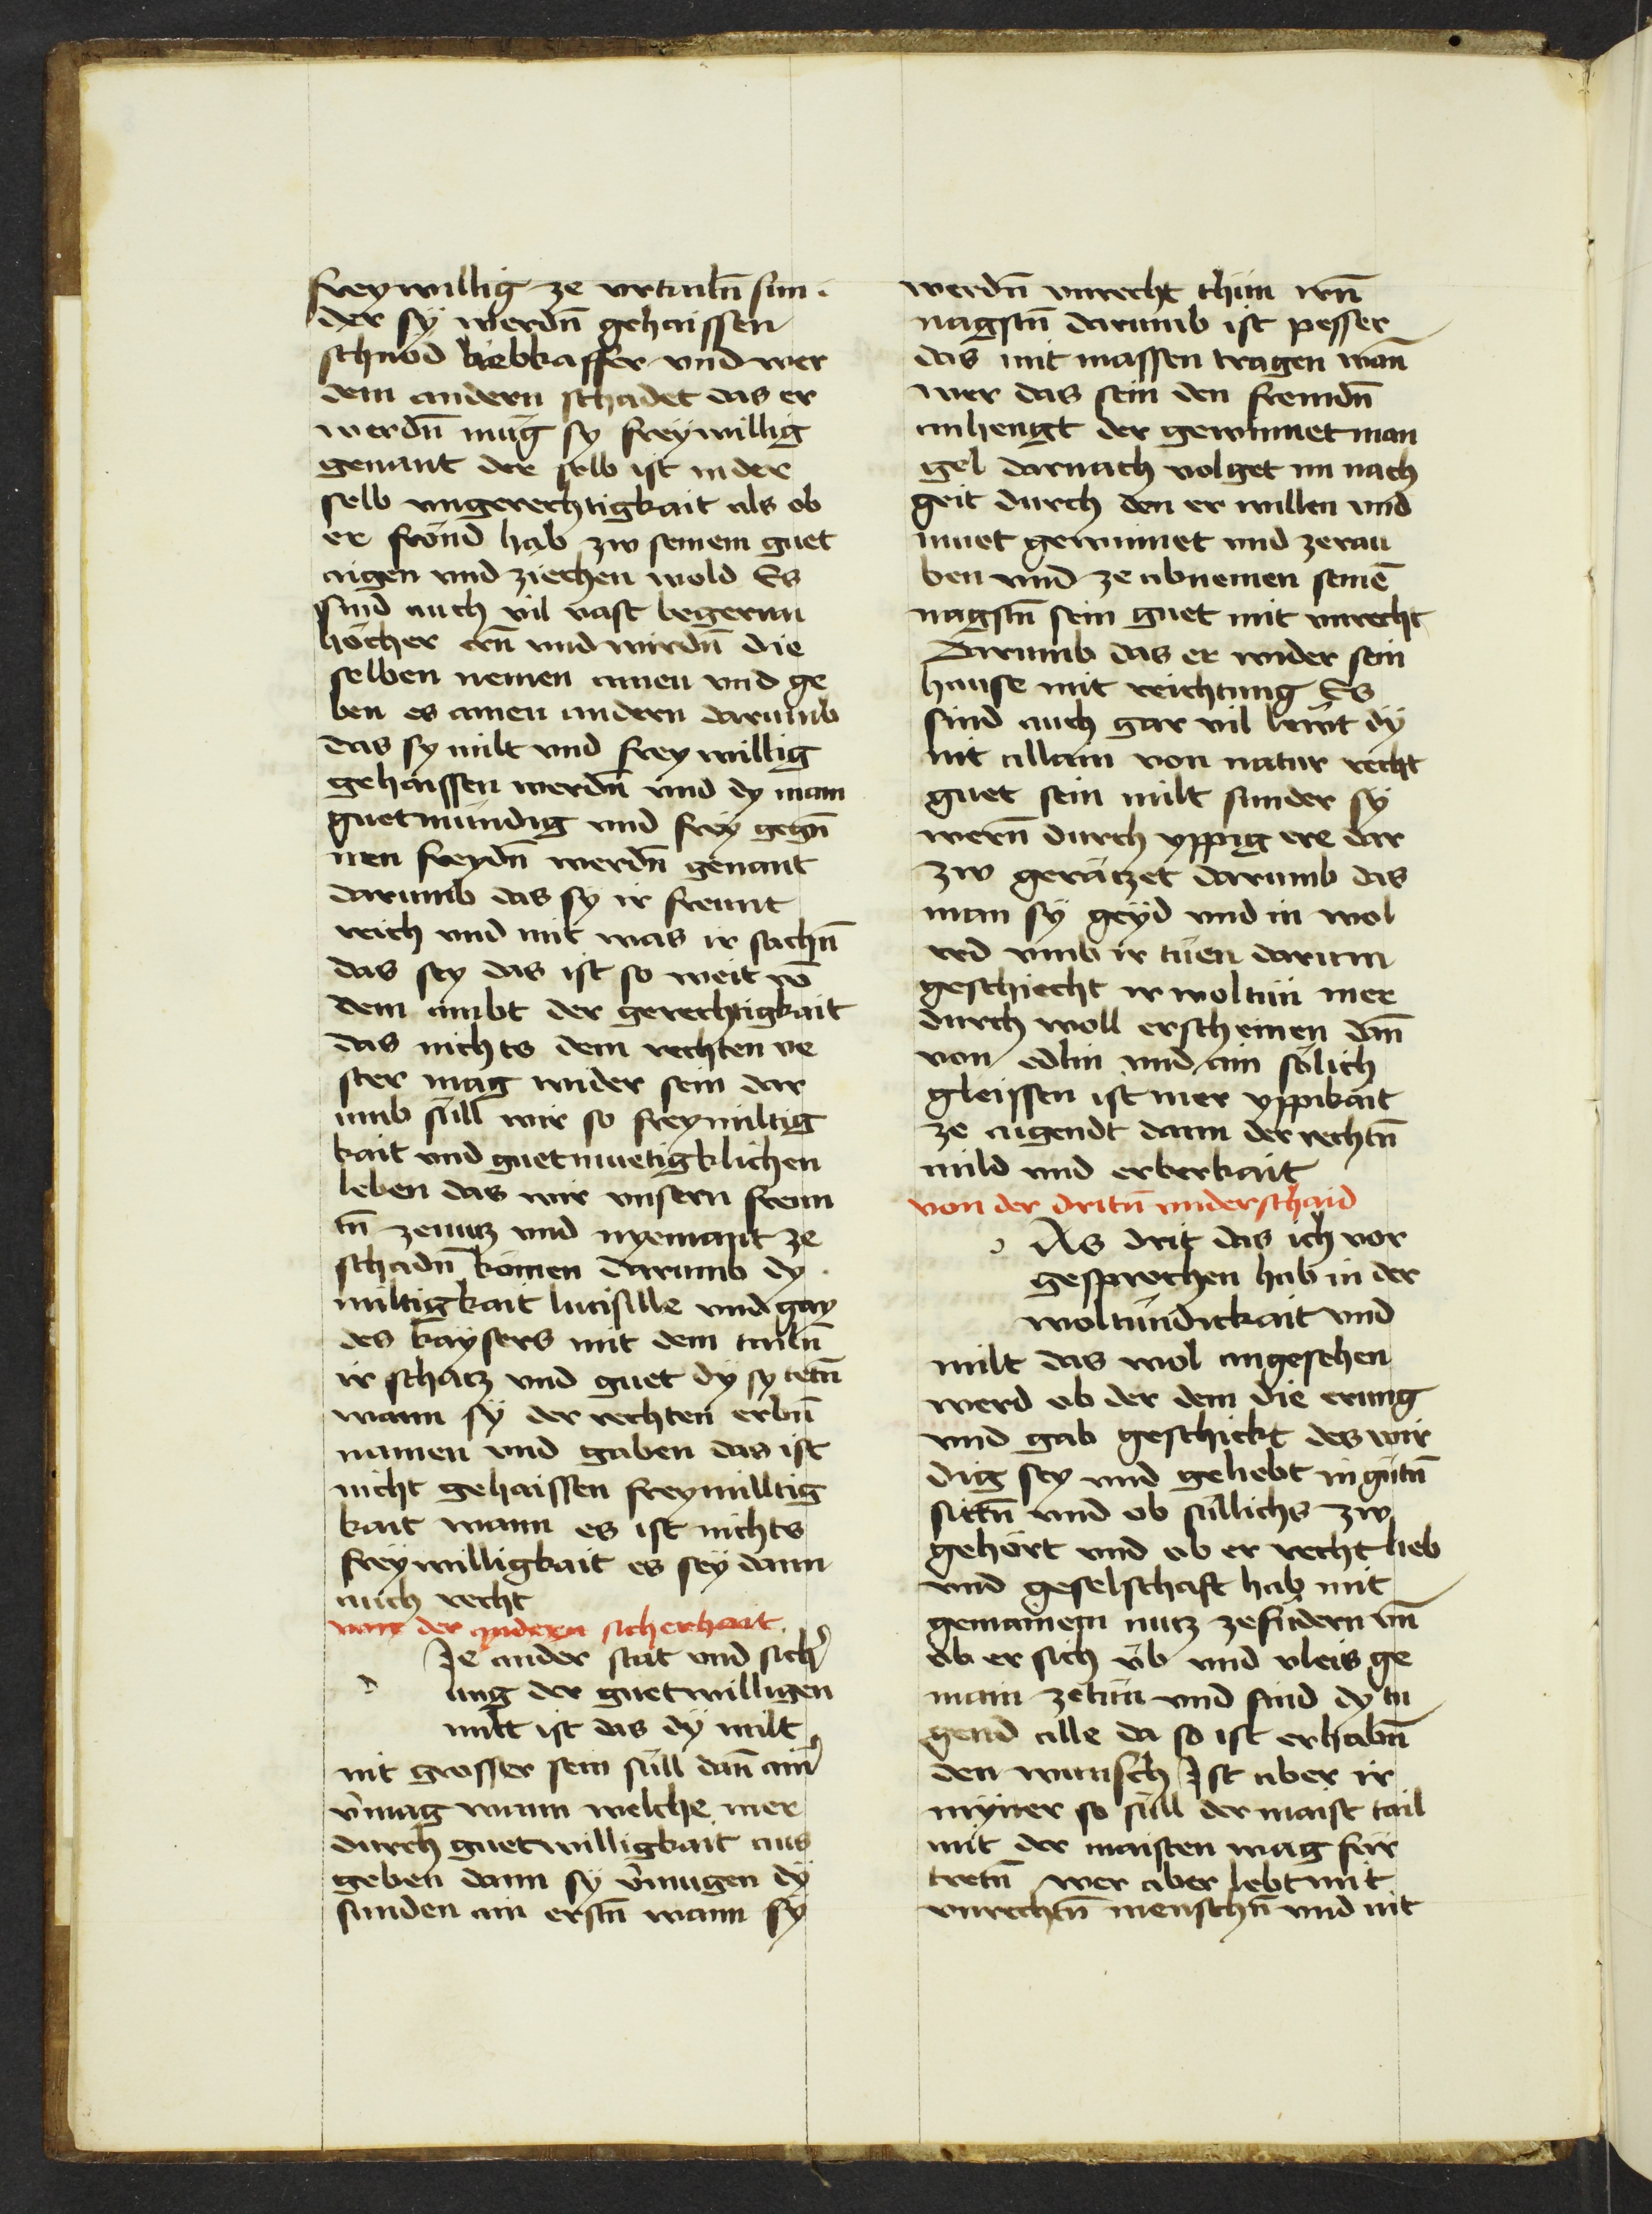 freywillig ze vrtailn̄ sun
der sy werdn̄ gehaissen
schnöd liebkaffer vnd wer
dem andern schadet das er
werdn̄ mug sy freywillig
genant der selb ist in der
selb vngerechtigkait als ob
er frömd hab zw seinem guet
aigen vnd ziechen wold Es
sind auch vil vast begernn
höcher ern̄ vnd wirdn̄ die
selben nemen ainen vnd ge
ben es ainen andern darumb
das sy milt vnd freywillig
gehaissen werdn̄ vnd dy main
guetmündig vnd frey gegn̄
iren freydn̄ werdn̄ genant
darumb das sy ir freunt
reich vnd mit was ir sachn̄
das sey das ist so weit vō
dem ambt der gerechtigkait
das nichts dem rechten ve
ster mag wider sein dar
umb süll wir so freymiltig
kait vnd guetmuetigklichen
leben das wir vnsern freun
tn̄ ze nutz vnd nyemant ze
schadn̄ kömen darumb dy
miltigkait lucisille vnd gay
des kaysers mit dem tailn̄
ir schatz vnd guet dy sy tetn̄
wann sy der rechten erbn̄
namen vnd gaben das ist
nicht gehaissen freymilltig
kait wann es ist nichts
freywilligkait es sey dann
auch recht
von der andern sicherhait
Je ander stat vnd sich
ung der guetwilligen
milt ist das dy milt
nit grosser sein süll dan̄ ain
v̄mag wann welche mer
durch guetwilligkait aus
geben dann sy v̄mugen dy
sunden am erstn̄ wann sy
werdn̄ vnrecht thün irn̄
nagstn̄ darumb ist pesser
das mit massen tragen wan̄
wer das sein den fremdn̄
anhengt der gewinnet man
gel darnach volget im nach
geit durch den er willen vnd
muet gewinnet vnd ze rau
ben vnd ze abnemen seinē
nagstn̄ sein guet mit vnrecht
Darumb das er wider sein
hause mit reichtung Es
sind auch gar vil lewt dy
nit allain von natur recht
guet sein milt sunder sy
wern̄ durch yppig ere dar
zw gerätzet darumb das
man sy geyd vnd in wol
red vmb ir tüen darum
geschiecht ir woltün mer
durch woll erscheinen dan̄
von edlin vnd ain sölich
gleissen ist mer yppikait
ze aigendt dann der rechtn̄
mild vnd erberkait
von der dritn̄ vnderschaid
As drit das ich vor
gesprochen hab in der
woltündickait vnd
milt das wol angesehen
werd ob der dem die erung
vnd gab geschickt des wir
dig sey vnd geliebt in gütn̄
sittn̄ vnd ob süllichs zw
gehört vnd ob er recht lieb
vnd geselschaft hab mit
gemainem nutz ze fudern vn̄
ob er sich üb vnd vleis ge
main ze tün vnd sind dy tu
gend alle da so ist erhabn̄
den wunsch Ist aber ir
myner so süll der maist tail
mit der maisten wag für
tretn̄ wer aber lebt mit
vnrechn̄ menschn̄ vnd nit